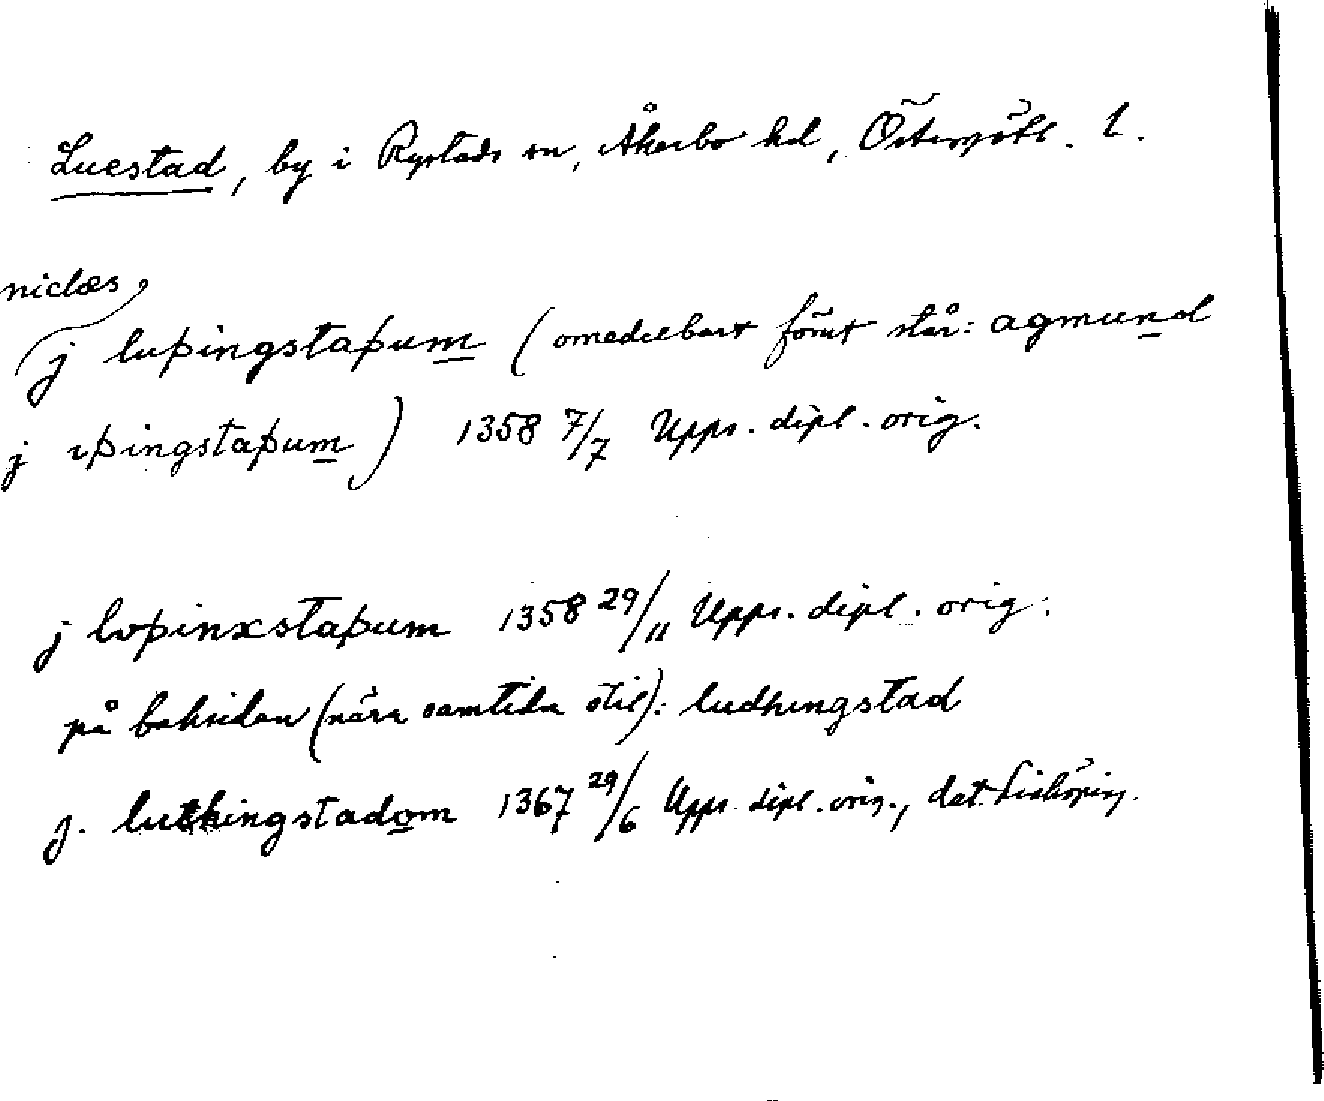 Luestad, by i Rystads sn, Åkerbo hd, Östergötl. l.
niclæs
j luþingstaþum (omedelbart förut står: agmund
j iþingstaþum) 1358 7/7 Upps. dipl. orig.
j loþinxstaþum 1358 29/11 Upps. dipl. orig.
på baksidan (nära samtida stil): ludhingstad
j. luthingstadom 1367 29/6 Upps. dipl. orig., dat. Linköping.